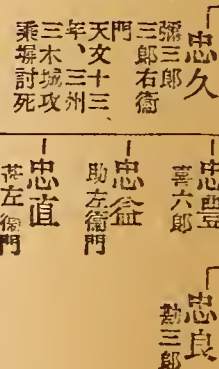 忠久
彌三郎
三郎右衞
門
天文十三、
年、三州
三木城攻
乘塀討死
忠豐
喜六郎
忠益
助左衞門
忠直
甚左衞門
忠良
勘三郎